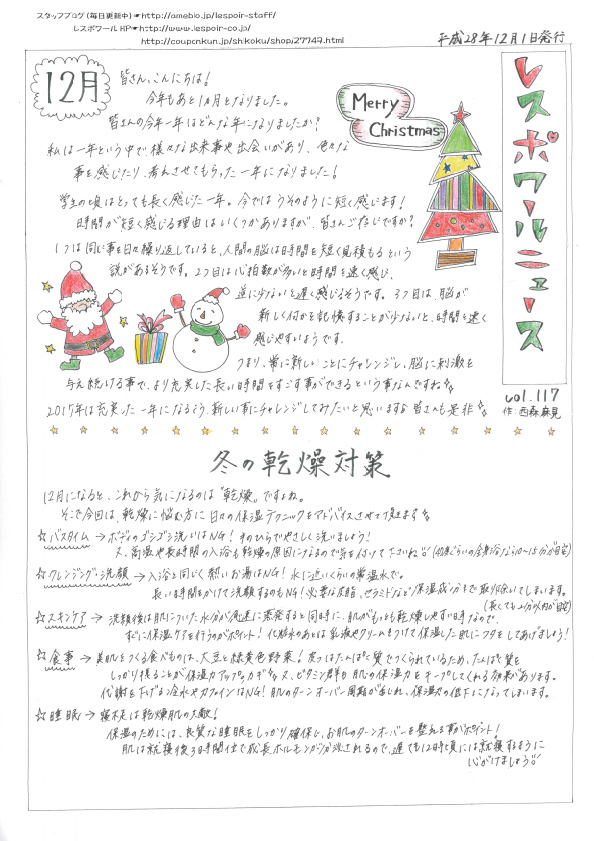 スタッフブログ(毎日更新中)☛http://ameblo.jp/lespoir-staff/
レスポワール HP☛http://www.lespoir-co.jp/
http://couponkun.jp/shikoku/shop/27749.html
平成28年12月1日発行
レスポワールニュース
vol.117
作:西森麻見
12月
皆さん、こんにちは!
今年もあと1ヵ月となりました。
皆さんの今年一年はどんな年になりましたか?
私は一年という中で様々な出来事や出会いがあり、色々な
事を感じたり、考えさせてもらった一年になりました!
学生の頃はとっても長く感じた一年。今ではうそのように短く感じます!
時間が短く感じる理由はいくつかありますが、皆さんご存じですか?
1つは同じ事を日々繰り返していると、人間の脳は時間を短く見積もるという
説があるそうです。2つ目は心拍数が多いと時間を速く感じ、
逆に少ないと遅く感じるそうです。3つ目は、脳が
新しく何かを記憶することが少ないと、時間を速く
感じやすいようです。
つまり、常に新しいことにチャレンジし、脳に刺激を
与え続ける事で、より充実した長い時間をすごす事ができるという事なんですね☆
2017年は充実した一年になるよう、新しい事にチャレンジしてみたいと思います♪皆さんも是非☆
Merry
Christmas
冬の乾燥対策
12月になると、これから気になるのは"乾燥"ですよね。
そこで今回は、乾燥に悩む方に日々の保湿テクニックをアドバイスさせて頂きます☆
☆バスタイム → ボディのゴシゴシ洗いはNG! 手のひらでやさしく洗いましょう!
又、高温や長時間の入浴も乾燥の原因になるので気を付けて下さいね!! (40度ぐらいの全身浴なら10~15分が目安)
☆クレンジング・洗顔 → 入浴と同じく熱いお湯はNG! 水に近いくらいの常温水で。
長い時間をかけて洗顔するのもNG! 必要な皮脂、セラミドなど保湿成分まで取り除いてしまいます。
(長くても2分以内が目安)
☆スキンケア → 洗顔後は肌についた水分が急速に蒸発すると同時に、肌がもっとも乾燥しやすい時なので、
すぐに保湿ケアを行うのがポイント! 化粧水のあとは乳液やクリームをつけて保湿した肌にフタをしてあげましょう!
☆食事 → 美肌をつくる食べものは、大豆と緑黄色野菜! 皮フはたんぱく質でつくられているため、たんぱく質を
しっかり摂ることが保湿力アップのカギ☆ 又、ビタミン群も肌の保湿力をキープしてくれる効果があります。
代謝を下げる冷水やカフェインはNG! 肌のターンオーバー周期が乱れ、保湿力の低下になってしまいます。
☆睡眠 → 寝不足は乾燥肌の大敵!
保湿のためには、良質な睡眠をしっかり確保し、お肌のターンオーバーを整える事がポイント!
肌は就寝後3時間位で成長ホルモンが分泌されるので、遅くても12時頃には就寝するように
心がけましょう!!